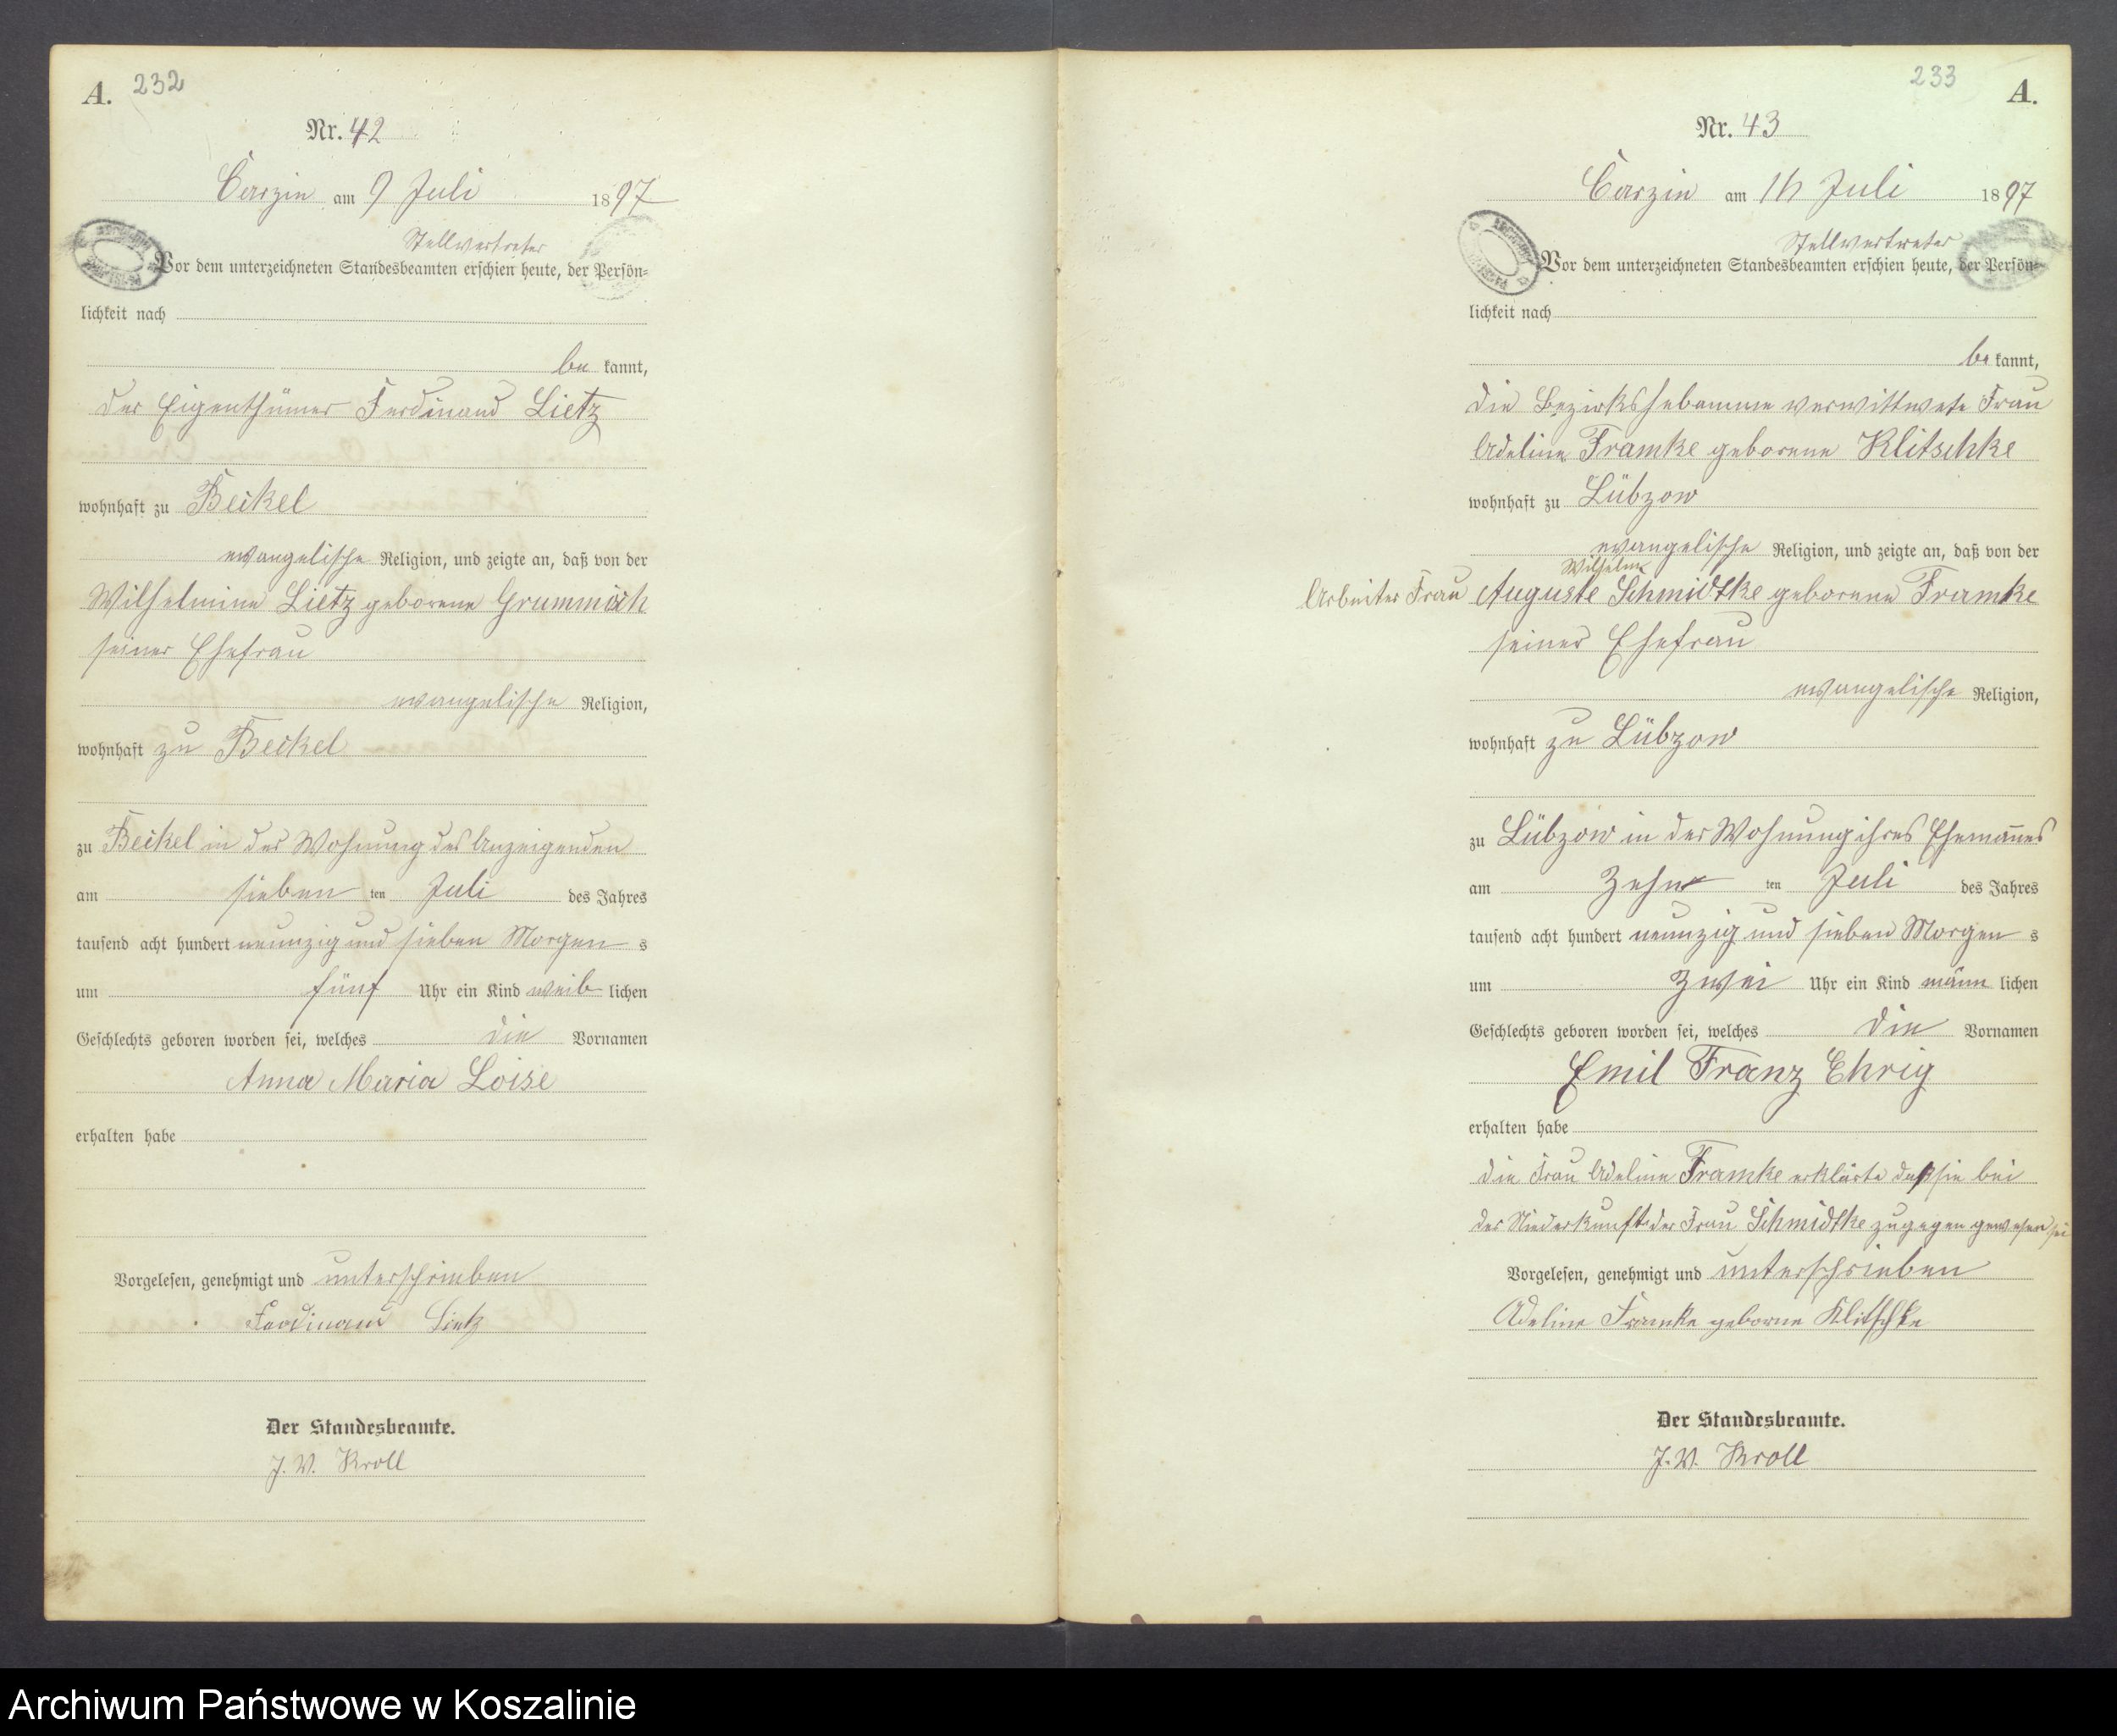 A. 232
Nr. 42
Carzin am 9 Juli 1897
Stellvertreter
Vor dem unterzeichneten Standesbeamten erschien heute, der Persön-
lichkeit nach
be kannt,
der Eigenthümer Ferdinand Lietz
wohnhaft zu Beckel
evangelische Religion, und zeigte an, daß von der
Wilhelmine Lietz geborene
seiner Ehefrau
evangelische Religion,
wohnhaft zu Beckel
zu Beckel in der Wohnung des Anzeigenden
am sieben ten Juli des Jahres
tausend acht hundert neunzig und sieben Morgen s
um fünf Uhr ein Kind weib lichen
Geschlechts geboren worden sei, welches die Vornamen
Anna Maria Loise
erhalten habe
Vorgelesen, genehmigt und unterschrieben
Ferdinand Lietz
Der Standesbeamte.
J. V. Kroll
233 A.
Nr. 43
Carzin am Juli 1897
Stellvertreter
Vor dem unterzeichneten Standesbeamten erschien heute, der Persön-
lichkeit nach
be kannt,
die Bezirkshebamme verwittwete Frau
Adeline Framke geborene Klitschke
wohnhaft zu Lübzow
evangelische Religion, und zeigte an, daß von der
Wilhelm
Arbeiter Frau Auguste Schmidtke geborene Framke
seiner Ehefrau
evangelische Religion,
wohnhaft zu Lübzow
zu Lübzow in der Wohnung ihres Ehemañes
am Zehn ten Juli des Jahres
tausend acht hundert neunzig und sieben Morgen s
um Zwei Uhr ein Kind männ lichen
Geschlechts geboren worden sei, welches die Vornamen
Emil Franz Ehrig
erhalten habe
die Frau Adeline Framke erklärte daß sie bei
der Niederkunft der Frau Schmidtke zugegen gewesen sei
Vorgelesen, genehmigt und unterschrieben
Adeline Framke geborne Klitschke
Der Standesbeamte.
J. V. Kroll
Archiwum Państwowe w Koszalinie